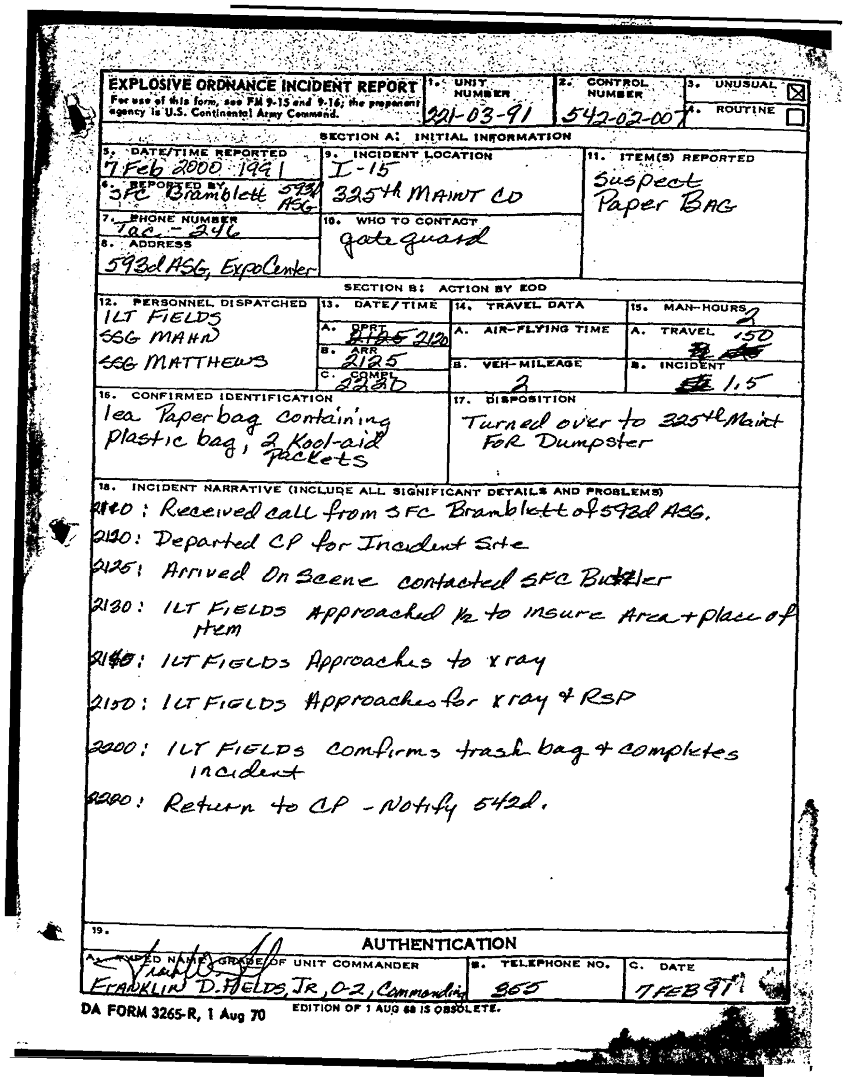 EXPLOSIVE ORDNANCE INCIDENT REPORT
For use of this form, see FM 9-15 and 9-16; the proponent
agency is U.S. Continental Army Command.
1. UNIT NUMBER
221-03-91
2. CONTROL NUMBER
542-02-007
3. UNUSUAL
4. ROUTINE
SECTION A: INITIAL INFORMATION
5. DATE/TIME REPORTED
7 Feb 2000 1991
6. REPORTED BY
SFC Bramblett 593d ASG
7. PHONE NUMBER
Tac - 246
8. ADDRESS
593d ASG, Expo Center
9. INCIDENT LOCATION
I-15
325th MAINT CO
10. WHO TO CONTACT
gate guard
11. ITEM(S) REPORTED
Suspect
Paper BAG
SECTION B: ACTION BY EOD
12. PERSONNEL DISPATCHED
1LT FIELDS
SSG MAHN
SSG MATTHEWS
13. DATE/TIME
A. DPRT
2120
B. ARR
2125
C. COMPL
2220
14. TRAVEL DATA
A. AIR-FLYING TIME
B. VEH-MILEAGE
2
15. MAN-HOURS
2
A. TRAVEL
.50
B. INCIDENT
1.5
16. CONFIRMED IDENTIFICATION
1ea Paper bag containing
plastic bag, 2 Kool-aid
packets
17. DISPOSITION
Turned over to 325th Maint
FOR Dumpster
18. INCIDENT NARRATIVE (INCLUDE ALL SIGNIFICANT DETAILS AND PROBLEMS)
: Received call from SFC Bramblett of 593d ASG.
2120: Departed CP for Incident Site
2125: Arrived On Scene contacted SFC Butler
2130: 1LT FIELDS Approached to insure Area + place of
item
: 1LT FIELDS Approaches to xray
2150: 1LT FIELDS Approaches for xray & RSP
2200: 1LT FIELDS comfirms trash bag & completes
incident
2220: Return to CP - Notify 542d.
19.
AUTHENTICATION
A. TYPED NAME, GRADE OF UNIT COMMANDER
FRANKLIN D. FIELDS, JR, O-2, Commanding
B. TELEPHONE NO.
365
C. DATE
7 FEB 91
DA FORM 3265-R, 1 Aug 70
EDITION OF 1 AUG 68 IS OBSOLETE.